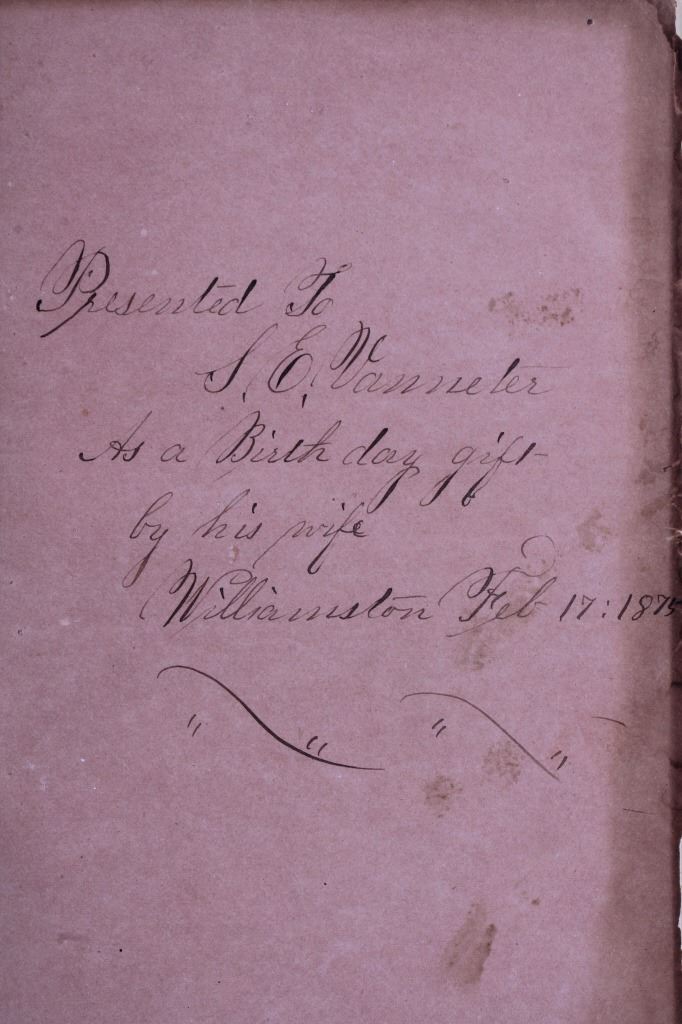 Presented To
S. E. Vanneter
As a Birth day gift
by his wife
Williamston Feb 17: 1875